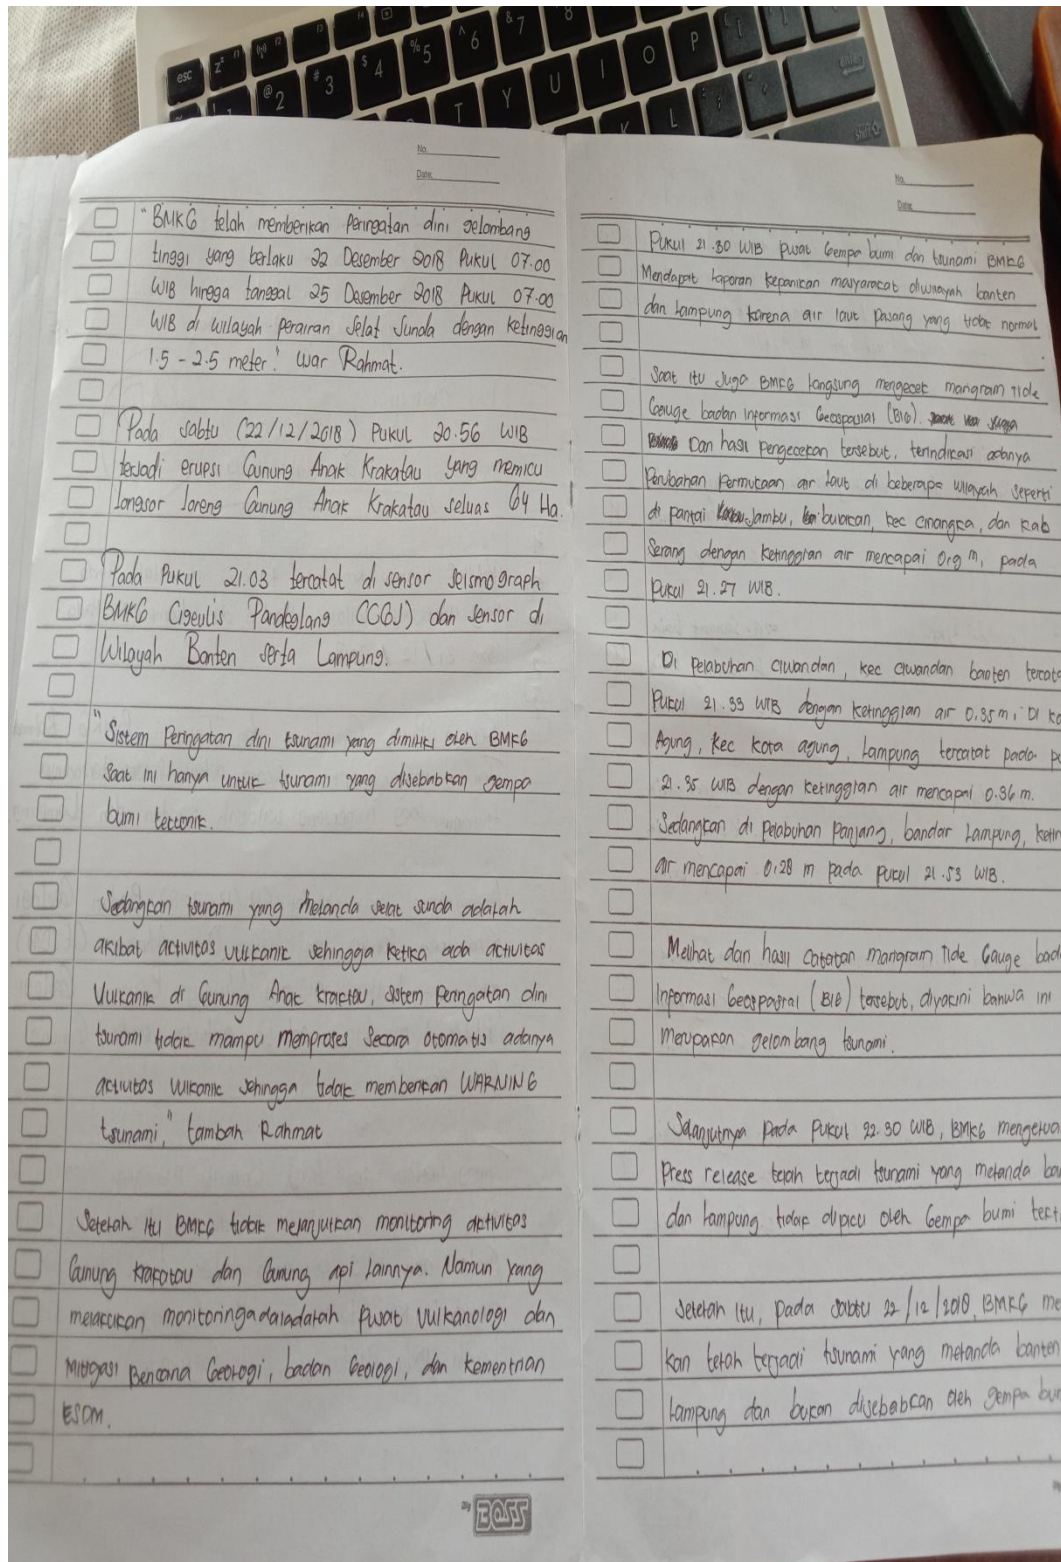 esc
@ 2
# 3
$ 4
% 5
^ 6
& 7
8
T
Y
U
I
O
P
K
L
shift
No.
Date:
"BMKG telah memberikan Peringatan dini gelombang
tinggi yang berlaku 22 Desember 2018 Pukul 07.00
WIB hingga tanggal 25 Desember 2018 Pukul 07.00
WIB di wilayah perairan Selat Sunda dengan ketinggian
1.5 - 2.5 meter" Uar Rahmat.
Pada sabtu (22/12/2018) Pukul 20.56 WIB
terjadi erupsi Gunung Anak Krakatau yang memicu
longsor loreng Gunung Anak Krakatau seluas 64 Ha.
Pada Pukul 21.03 tercatat di sensor seismograph
BMKG Cigeulis Pandeglang (CGJ) dan sensor di
Wilayah Banten serta Lampung.
"Sistem Peringatan dini tsunami yang dimiliki oleh BMKG
saat ini hanya untuk tsunami yang disebabkan gempa
bumi tektonik.
Sedangkan tsunami yang melanda selat sunda adalah
akibat activitas vulkanik sehingga ketika ada activitas
Vulkanik di Gunung Anak krakatau, sistem peringatan dini
tsunami tidak mampu memproses secara otomatis adanya
activitas vulkanik sehingga tidak memberikan WARNING
tsunami," tambah Rahmat
Setelah itu BMKG tidak melanjutkan monitoring aktivitas
Gunung krakatau dan Gunung api lainnya. Namun yang
melakukan monitoring adalah Pusat Vulkanologi dan
Mitigasi Bencana Geologi, badan Geologi, dan kementrian
ESDM.
BOSS
No.
Date:
Pukul 21.30 WIB pusat Gempa bumi dan tsunami BMKG
Mendapat laporan kepanikan masyarakat diwilayah banten
dan Lampung karena air laut pasang yang tidak normal
.
Saat itu Juga BMKG langsung mengecek marigram Tide
Gauge badan Informasi Geospasial (BIG).
Dan hasil pengecekan tersebut, terindikasi adanya
Perubahan Permukaan air laut di beberapa wilayah seperti
di pantai Jambu, bulakan, kec cinangka, dan kab
Serang dengan ketinggian air mencapai m, pada
Pukul 21.27 WIB.
Di Pelabuhan ciwandan, kec ciwandan banten tercat
Pukul 21.33 WIB dengan ketinggian air 0.35m, Di ko
Agung, kec kota agung, Lampung tercatat pada p
21.35 WIB dengan ketinggian air mencapai 0.36 m.
Sedangkan di pelabuhan panjang, bandar Lampung, ketin
air mencapai 0.28 m pada pukul 21.53 WIB.
Melihat dan hasil catatan marigram Tide Gauge bad
Informasi Geospasial (BIG) tersebut, diyakini bahwa ini
merupakan gelombang tsunami.
Selanjutnya pada Pukul 22.30 WIB, BMKG mengelua
Press release telah terjadi tsunami yang melanda ba
dan lampung tidak dipicu oleh Gempa bumi tekt
Setelah Itu, pada sabtu 22/12/2018, BMKG me
kan telah terjadi tsunami yang melanda banten
Lampung dan bukan disebabkan oleh gempa bu